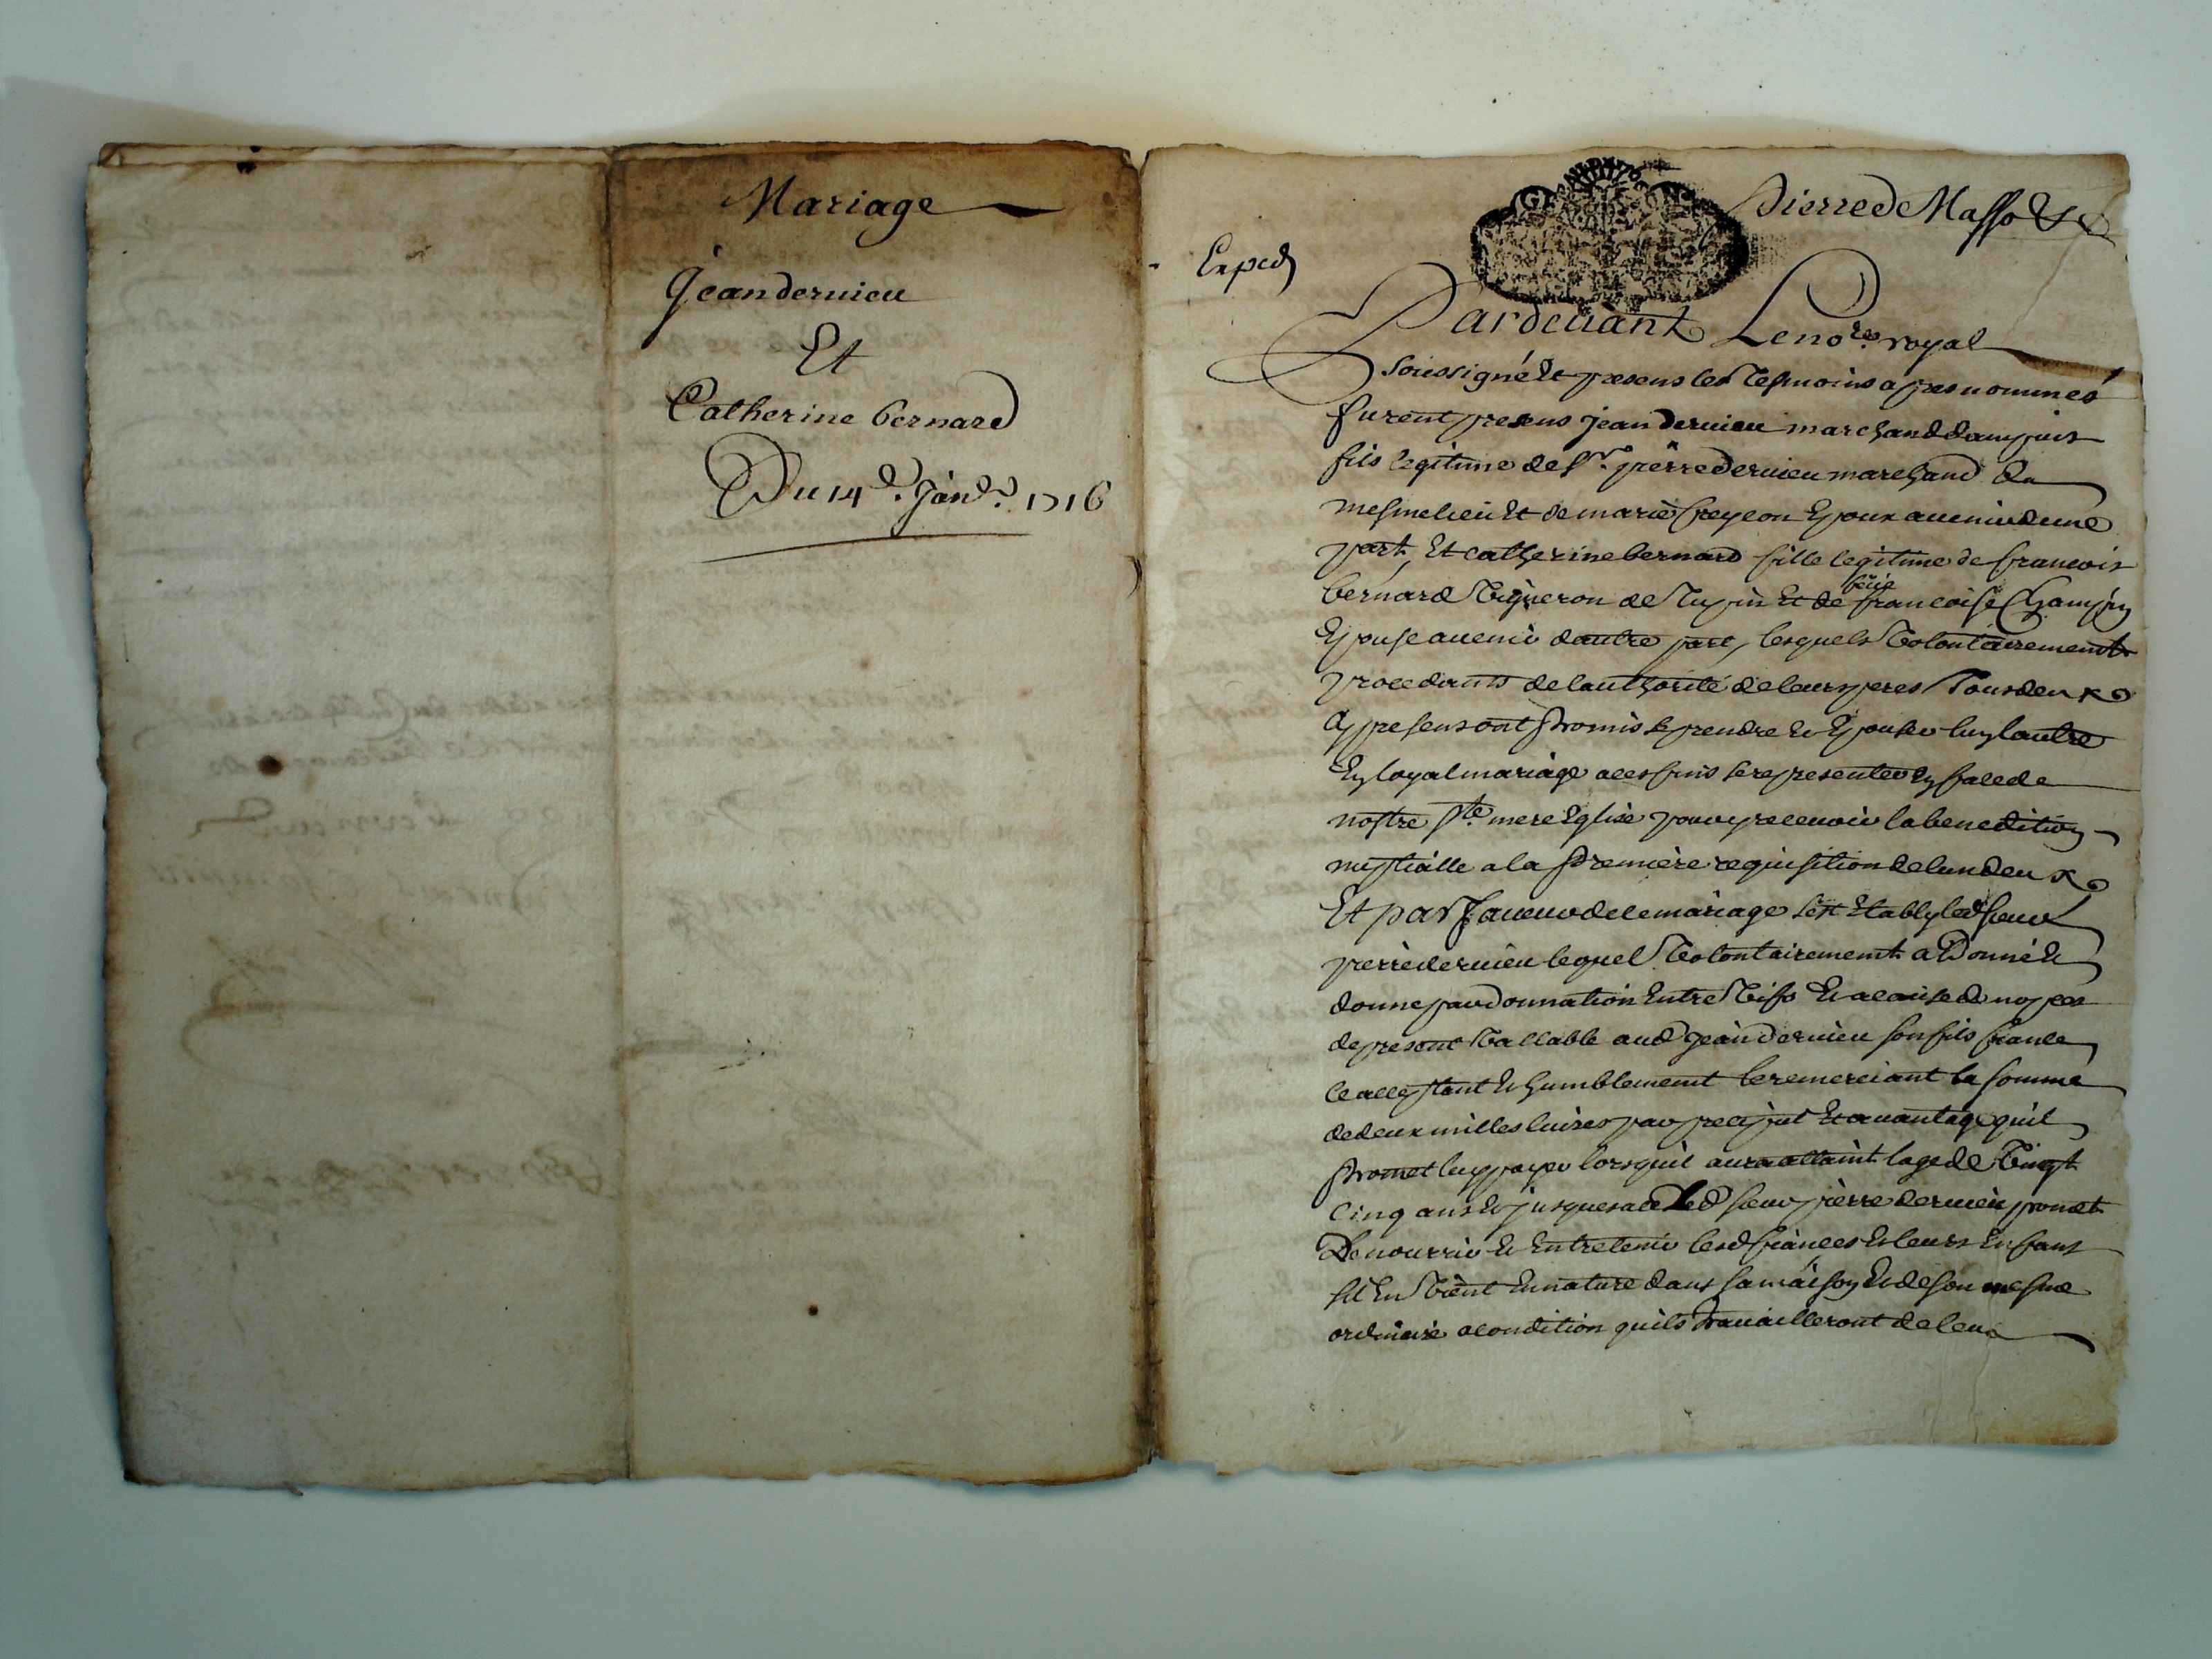 Mariage
Jean dervieu
Et
Catherine bernard
Du 14e. Janvr. 1716
Exped
Pierre de Masso &c
Pardevant Le nore. royal
soussigné et presens les tesmoins apres nommés
furent presens jean dervieu marchand dampuis
fils legitime de sr. pierre dervieu marchand du
mesme lieu et de marie epoux avenir dune
part, Et catherine bernard fille legitime de francois
bernard vigneron de tupin et de feüe francoise
Epouse avenir dautre part, lesquels volontairement
procedants de lauthorité de leurs peres tous deux
cy presens ont promis se prendre et Epouser luy lautre
En loyal mariage a ces fins se representer en face de
nostre ste mere Eglise pour y recevoir la benedition
nuptialle a la premiere requisition de lun deux
Et par faveur de ce mariage sest Etably led sieur
pierre dervieu lequel volontairement a donné et
donne par donnation Entre vifs et a cause de nopces
de present vallable aud jean dervieu son fils fiance
ce acceptant et humblement le remerciant la somme
de deux milles livres par preciput et avantage quil
promet luy payer lorsquil aura attaint lage de vingt
cinq ans et jusques a ce led sieur pierre dervieu promet
de nourrir et Entretenir lesd fiances et leurs Enfans
sil En vient En nature dans sa maison et de son mesme
ordinaire a condition quils travailleront de leur